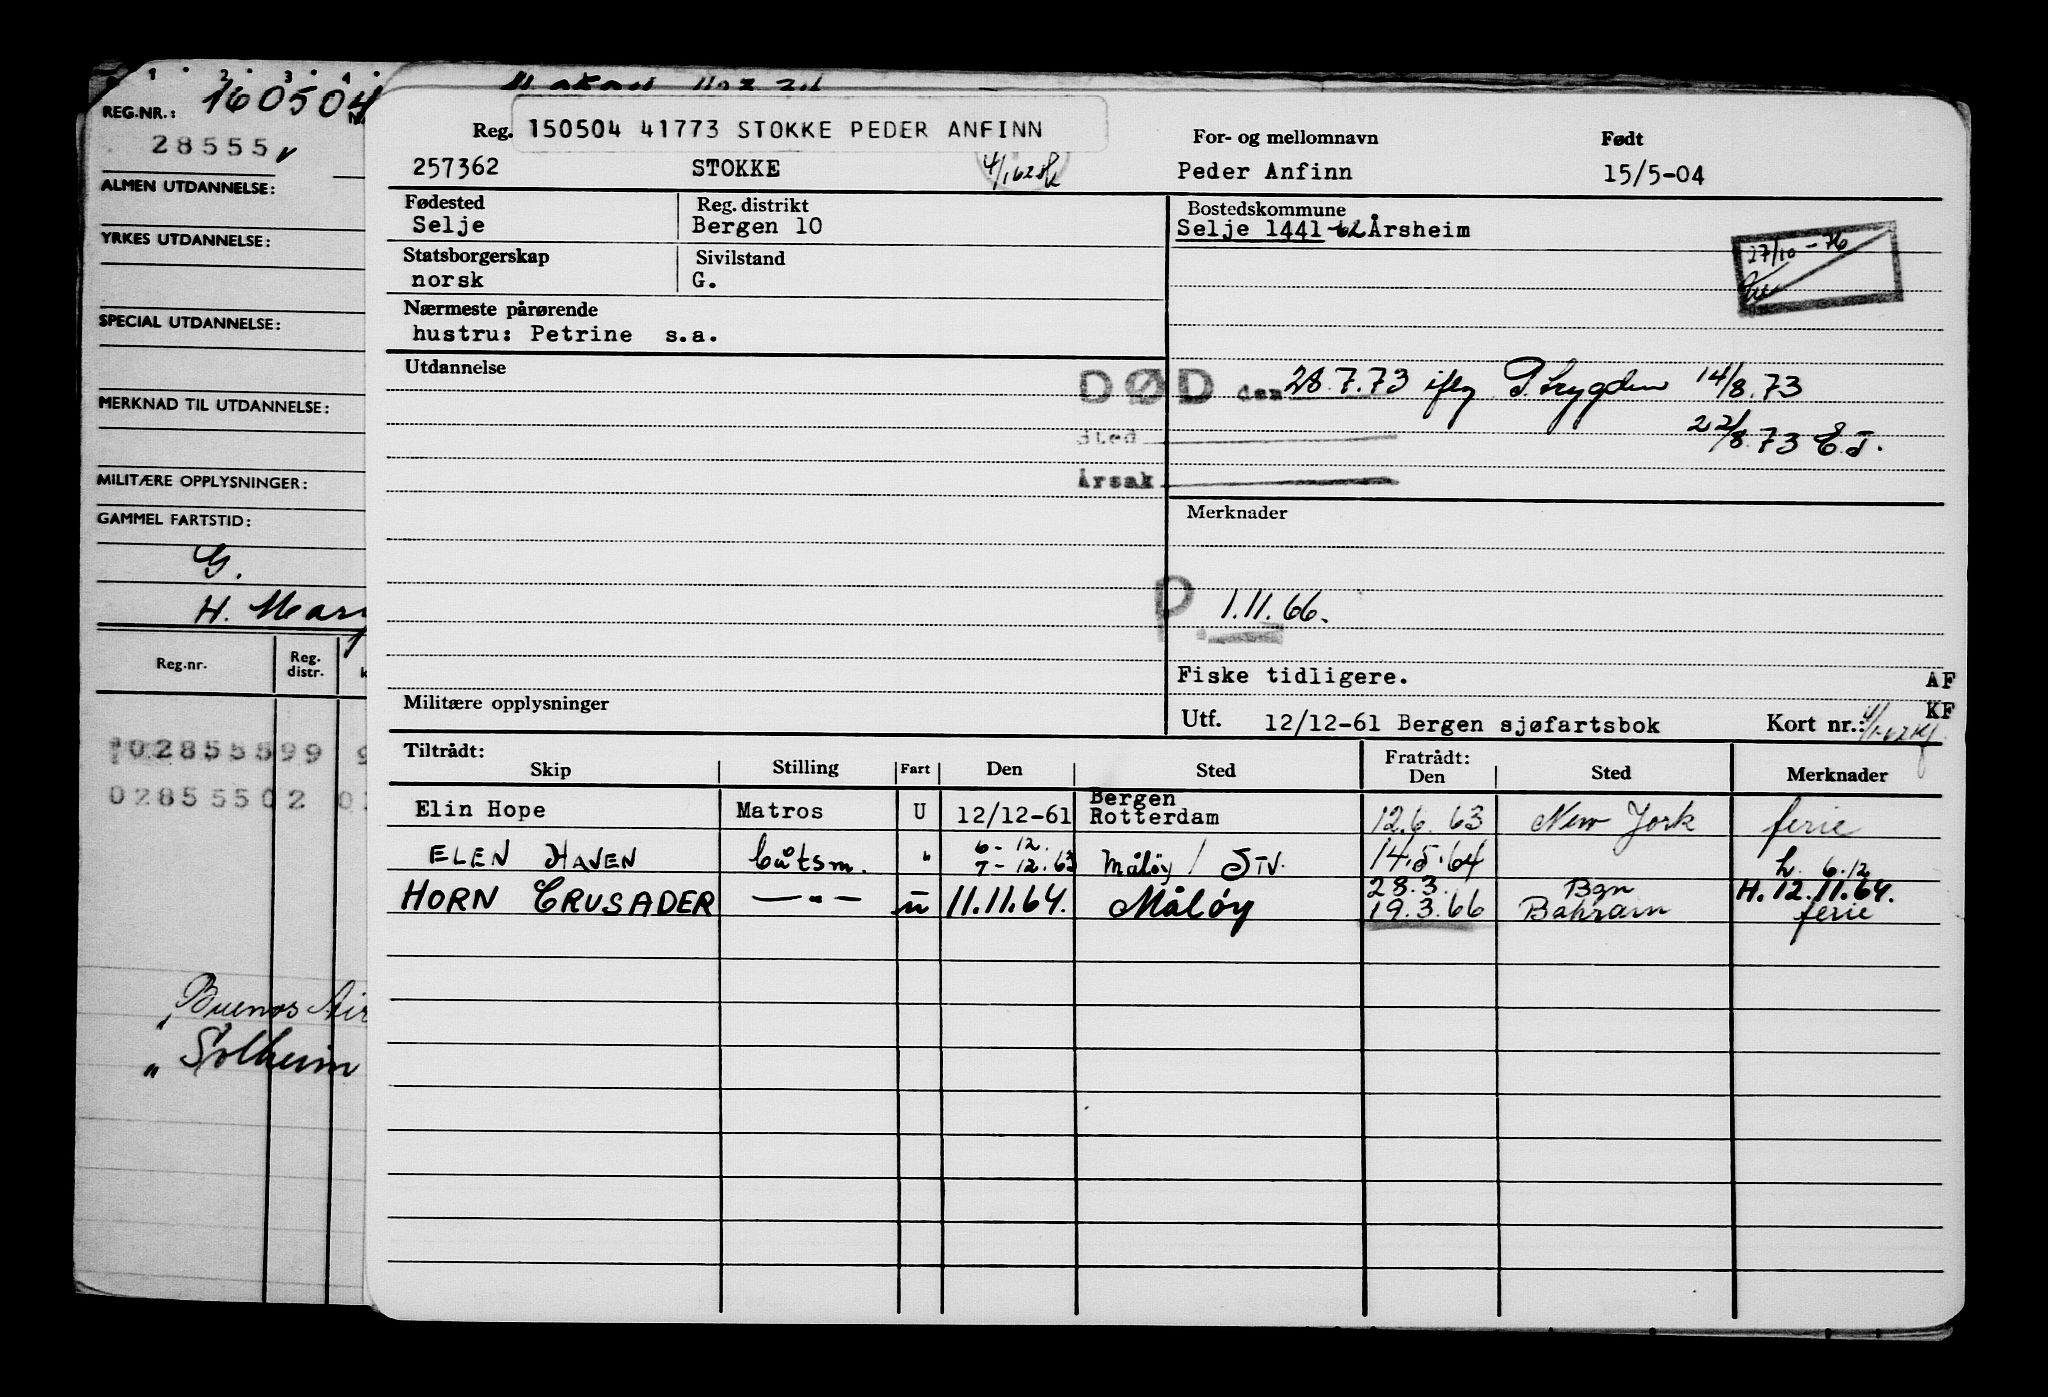 1 2 3 4
REG.NR.: 160504
28555
ALMEN UTDANNELSE:
YRKES UTDANNELSE:
SPECIAL UTDANNELSE:
MERKNAD TIL UTDANNELSE:
MILITÆRE OPPLYSNINGER:
GAMMEL FARTSTID:
G.
H. Mar
Reg.nr. Reg. distr.
02855599 9
02855502 0
Buenos Air
" Solheim
Reg. 150504 41773 STOKKE PEDER ANFINN For- og mellomnavn Født
257362 STOKKE Peder Anfinn 15/5-04
Fødested Reg. distrikt Bostedskommune
Selje Bergen 10 Selje 1441-62 Årsheim
Statsborgerskap Sivilstand
norsk G.
27/10-76
Nærmeste pårørende
hustru: Petrine s.a.
Utdannelse
DØD den 28.7.73 iflg P.trygden 14/8.73
Sted 22/8.73 E.J.
Årsak
Merknader
P. 1.11.66.
Fiske tidligere. AF
Militære opplysninger KF
Utf. 12/12-61 Bergen sjøfartsbok Kort nr.:
Tiltrådt: Fratrådt:
Skip Stilling Fart Den Sted Den Sted Merknader
Elin Hope Matros U 12/12-61 Bergen Rotterdam 12.6.63 New York ferie
ELEN HAVEN båtsm. " 6-12. 7-12.63 Måløy / STV. 14.5.64 h. 6.12
HORN CRUSADER —"— u 11.11.64. Måløy 28.3. Bgn H.12.11.64.
19.3.66 Bahrain ferie